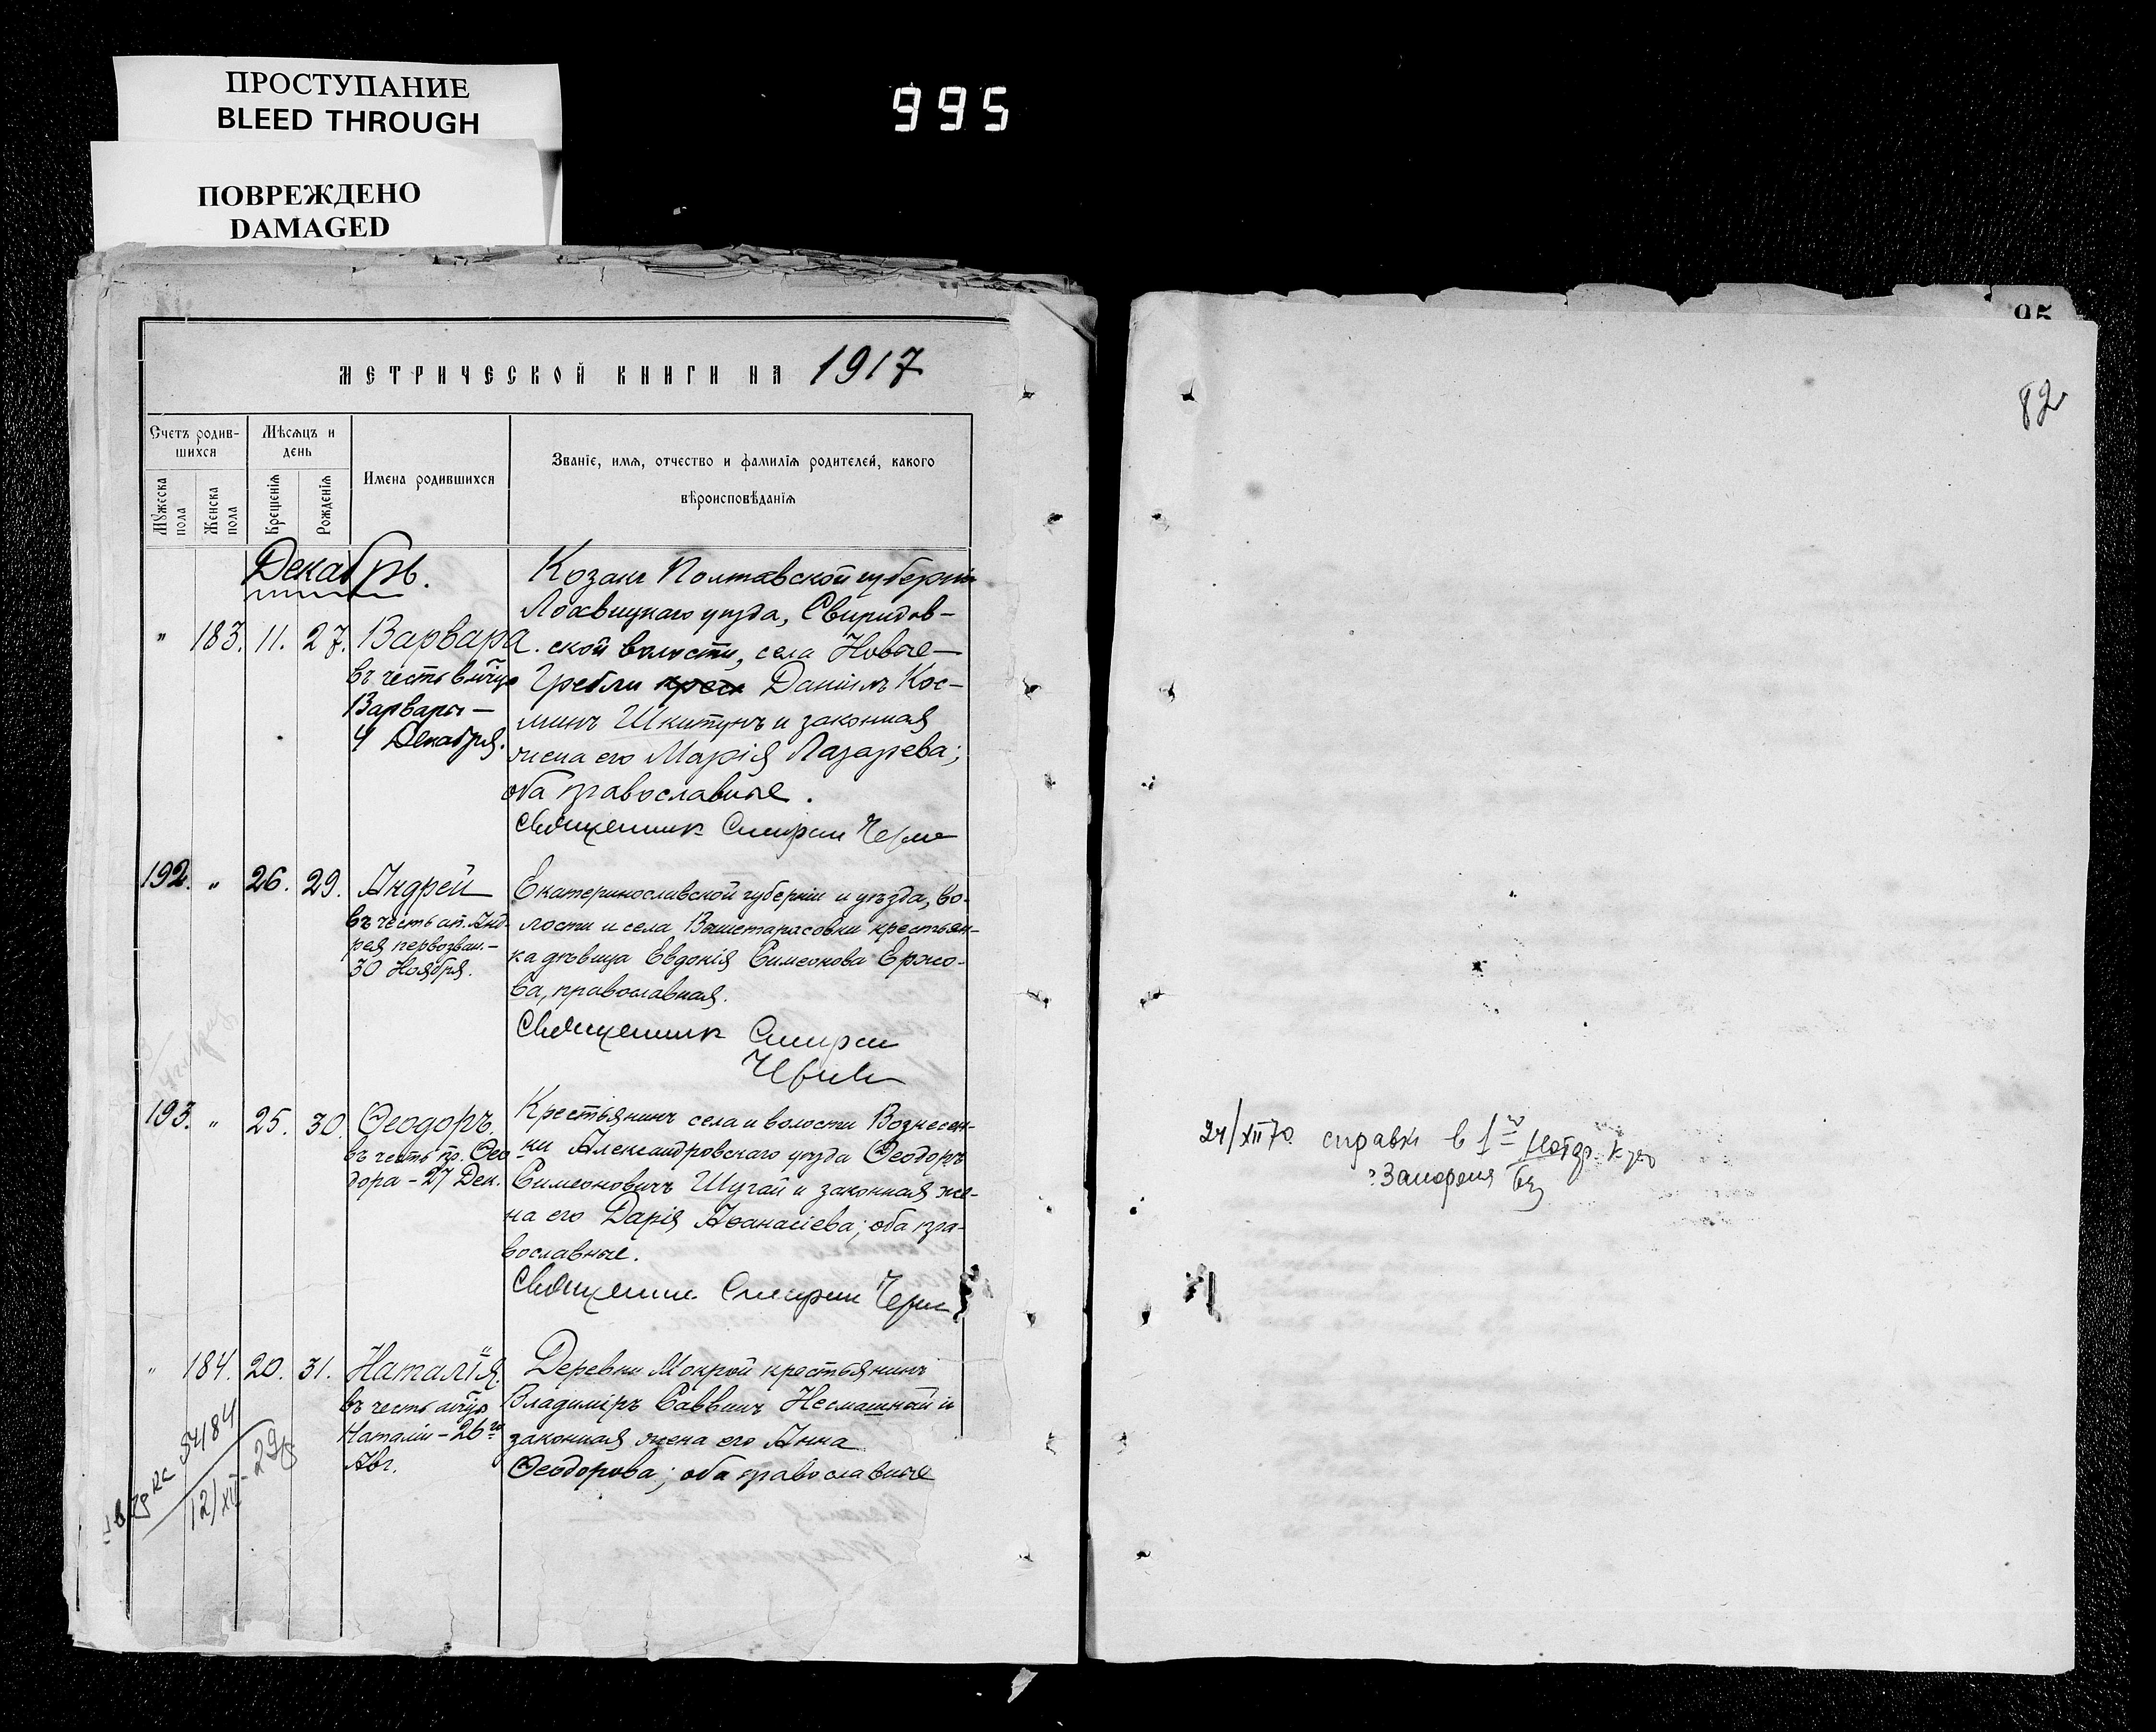 ПРОСТУПАНИЕ
BLEED THROUGH
ПОВРЕЖДЕНО
DAMAGED
995
МЕТРИЧЕСКОЙ КНИГИ НА 1917
Счетъ родив-
шихся
Мужеска пола
Женска пола
Мѣсяцъ и
день
Крещенія
Рожденія
Имена родившихся
Званіе, имя, отчество и фамилія родителей, какого
вѣроисповѣданія
Декабрь.
" 183. 11. 27. Варвара
въ честь
Варвары —
4 Декабря.
Козакъ Полтавской губерніи
Лохвицкаго уѣзда, Свиридов-
ской волости, села Новые—
Гребли Даніилъ Кос-
минъ Шкитунъ и законная
жена его Марія Лазарева;
оба православные.
Священник
192. " 26. 29. Андрей
въ честь ап. Анд-
рея первозван. —
30 Ноября.
Екатеринославской губерніи и уѣзда, во-
лости и села Вышетарасовки крестьян-
ка дѣвица Евдокія Симеонова Ержо-
ва, православная.
Священник
193. " 25. 30. Ѳеодоръ.
въ честь пр. Ѳео
дора - 27 Дек.
Крестьянинъ села и волости Вознесен-
ки Александровскаго уѣзда Ѳеодоръ
Симеоновичъ Шугай и законная же-
на его Дарія Аѳанасіева; оба пра-
вославные.
" 184. 20. 31. Наталія.
въ честь
Наталіи - 26го
Авг.
Деревни Мокрой крестьянинъ
Владиміръ Саввинъ Несмашный и
законная жена его Анна
Ѳеодорова; оба православные
95
82
24/XII 70 справка в 1